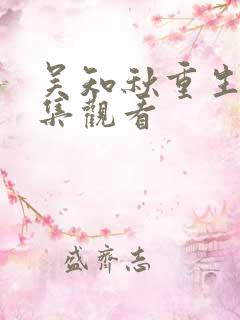 吴知秋重生
集觀看
盛齊志